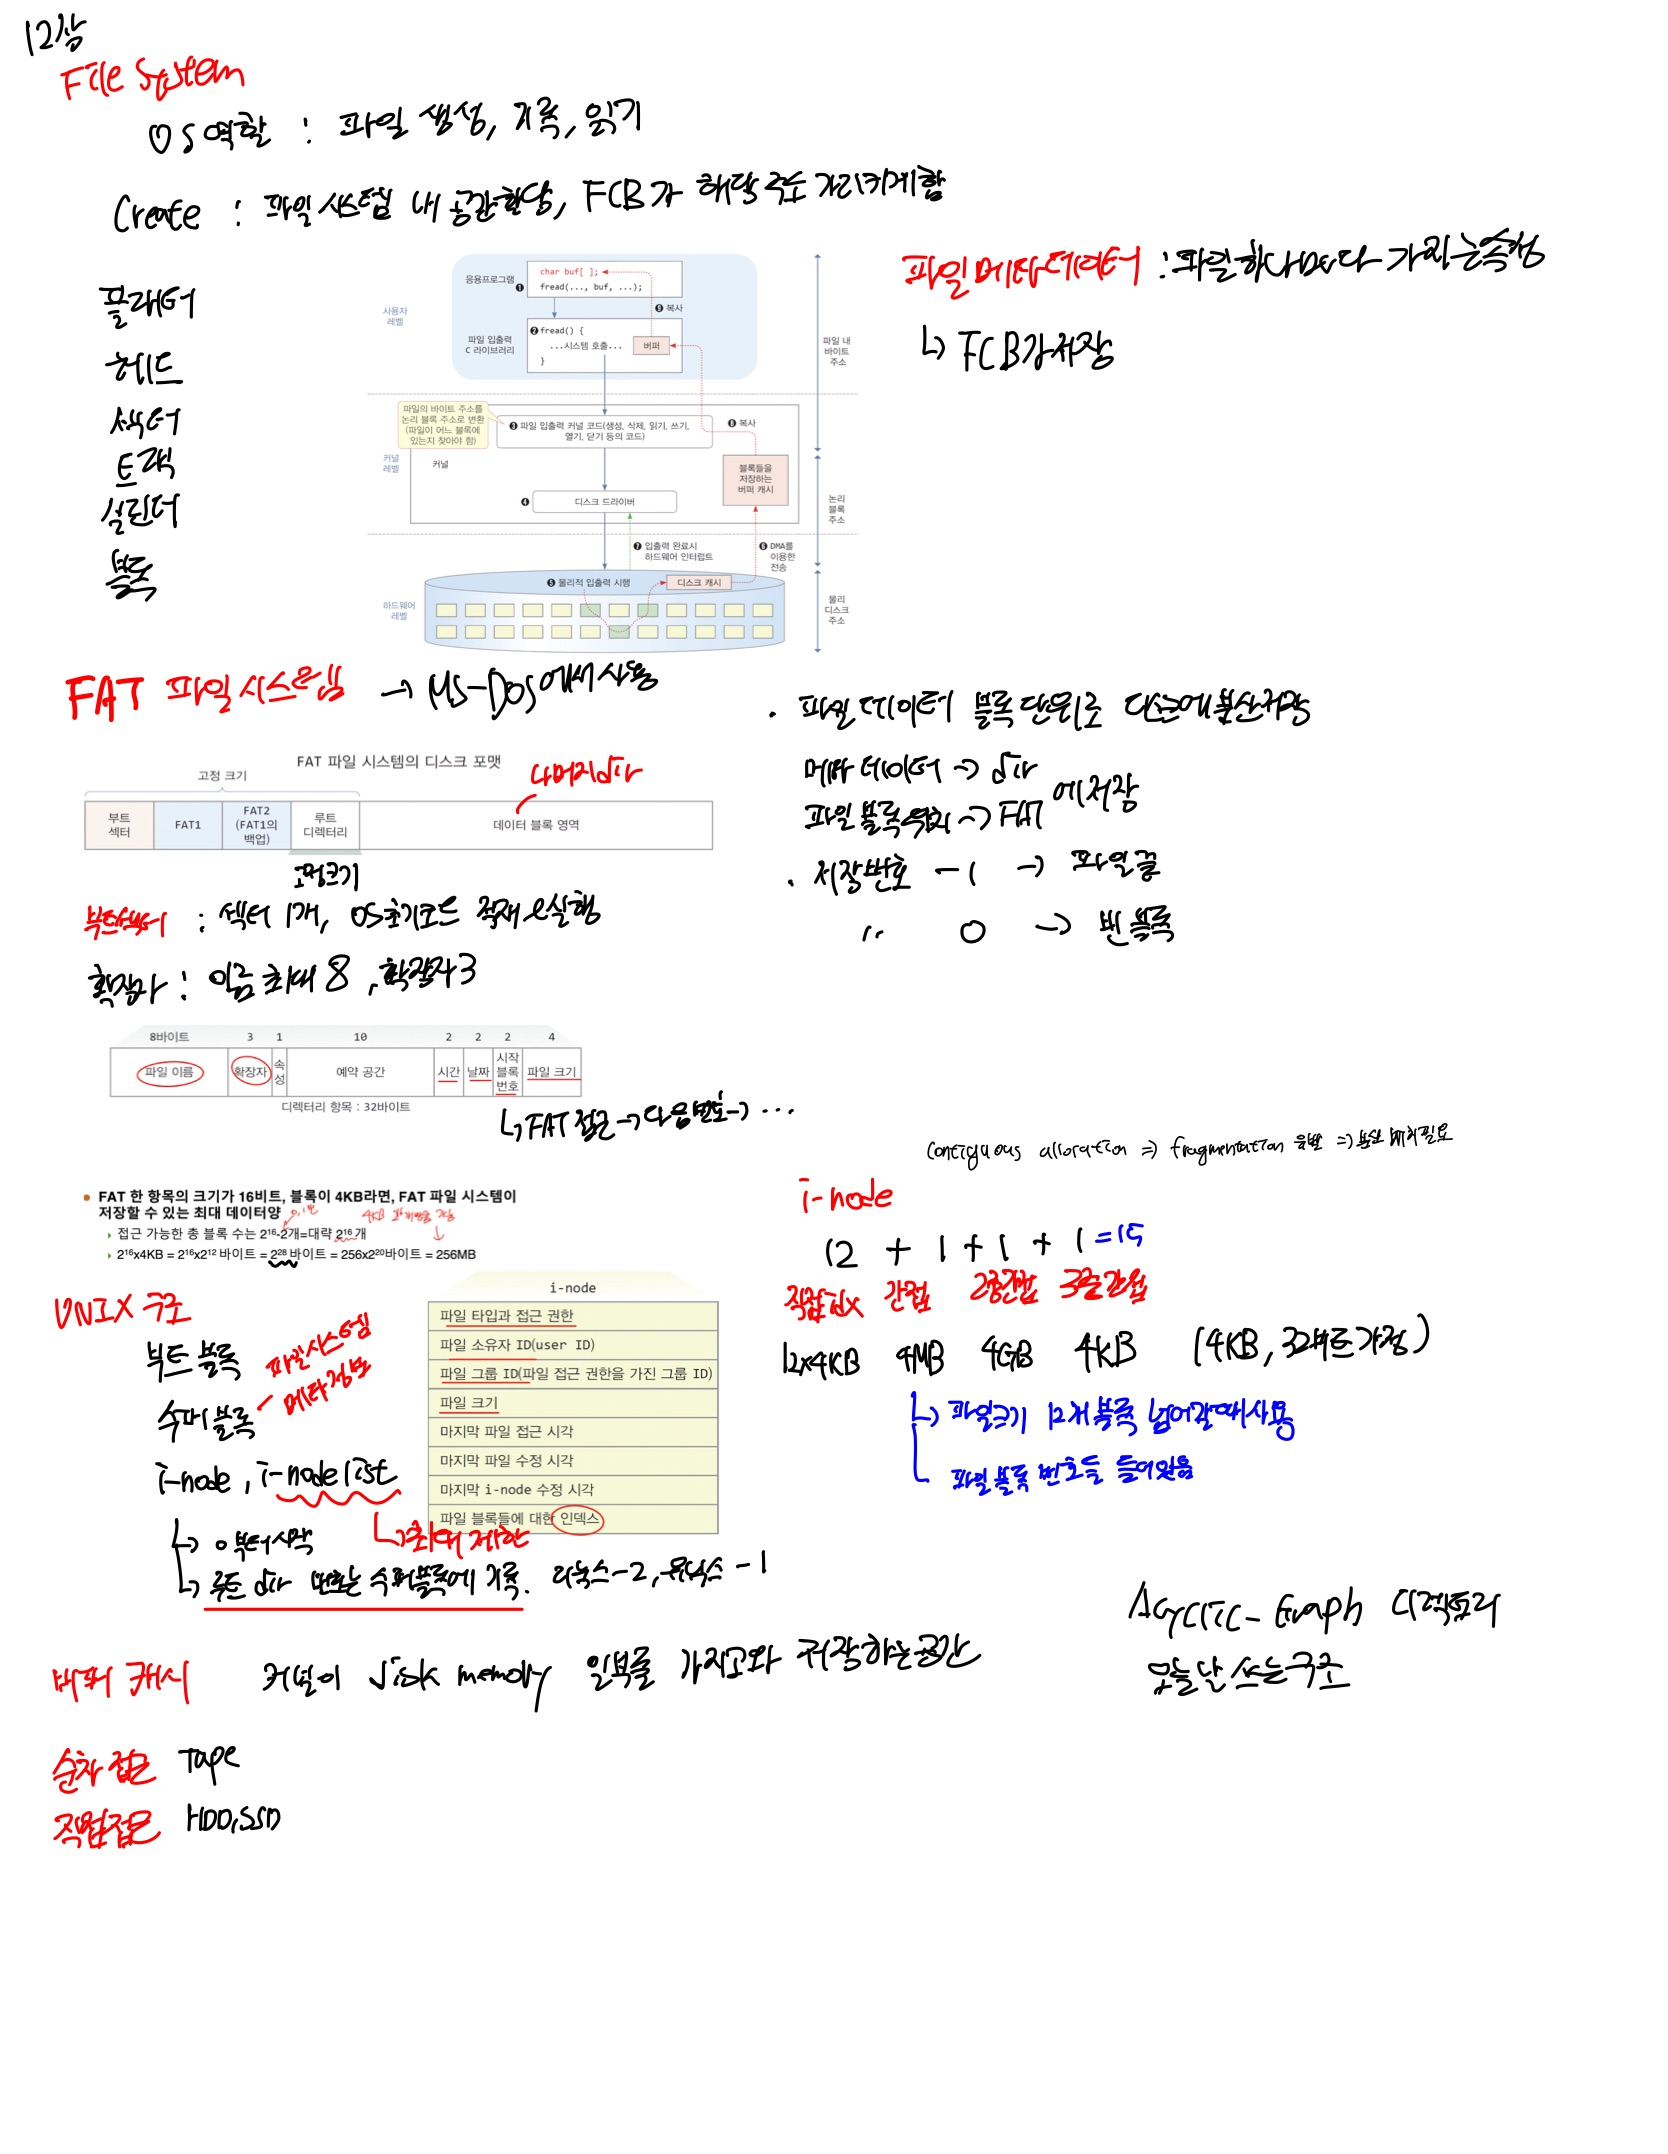 12장
File System
OS역할 : 파일 생성, 기록, 읽기
Create : 파일 시스템 내 공간할당, FCB가 해당 주소 가리키게함
플래터
헤드
섹터
트랙
실린더
블록
응용프로그램
char buf[ ];
❶ fread(..., buf, ...);
❾ 복사
사용자
레벨
파일 입출력
C 라이브러리
❷ fread() {
...시스템 호출...
}
버퍼
파일 내
바이트
주소
파일의 바이트 주소를
논리 블록 주소로 변환
(파일이 어느 블록에
있는지 찾아야 함)
❸ 파일 입출력 커널 코드(생성, 삭제, 읽기, 쓰기,
열기, 닫기 등의 코드)
❽ 복사
커널
레벨
커널
블록들을
저장하는
버퍼 캐시
❹ 디스크 드라이버
논리
블록
주소
❼ 입출력 완료시
하드웨어 인터럽트
❻ DMA를
이용한
전송
❺ 물리적 입출력 시행
디스크 캐시
하드웨어
레벨
물리
디스크
주소
파일메타데이터 : 파일하나마다 가지는속성
↳ FCB가저장
FAT 파일시스템 → MS-DOS에서사용
FAT 파일 시스템의 디스크 포맷
고정 크기
나머지dir
부트
섹터
FAT1
FAT2
(FAT1의
백업)
루트
디렉터리
데이터 블록 영역
고정크기
부트섹터 : 섹터 1개, OS초기코드 적재&실행
확장자 : 이름 최대 8, 확장자3
8바이트 3 1 10 2 2 2 4
파일 이름
확장자
속
성
예약 공간
시간
날짜
시작
블록
번호
파일 크기
디렉터리 항목 : 32바이트
↳ FAT 접근 → 다음번호 → ...
· 파일 데이터 블록 단위로 디스크에분산저장
메타 데이터 → dir
파일 블록위치 → FAT 에저장
· 저장번호 -1 → 파일끝
〃 0 → 빈 블록
• FAT 한 항목의 크기가 16비트, 블록이 4KB라면, FAT 파일 시스템이
저장할 수 있는 최대 데이터양
▸ 접근 가능한 총 블록 수는 2¹⁶-2개=대략 2¹⁶개
▸ 2¹⁶x4KB = 2¹⁶x2¹² 바이트 = 2²⁸ 바이트 = 256x2²⁰바이트 = 256MB
contiguous allocation ⇒ fragmentation 유발 ⇒ 분산 배치필요
i-node
12 + 1 + 1 + 1 = 15
직접idx 간접 2중간접 3중간접
12x4KB 4MB 4GB 4KB (4KB, 32비트가정)
↳ 파일크기 12개 블록 넘어갈때사용
파일블록 번호들 들어있음
UNIX 구조
부트 블록
수퍼블록 - 파일시스템
메타정보
i-node, i-node list
↳ 0부터시작
↳ 최대 제한
↳ 루트 dir 번호는 수퍼블록에 기록. 리눅스-2, 유닉스-1
i-node
파일 타입과 접근 권한
파일 소유자 ID(user ID)
파일 그룹 ID(파일 접근 권한을 가진 그룹 ID)
파일 크기
마지막 파일 접근 시각
마지막 파일 수정 시각
마지막 i-node 수정 시각
파일 블록들에 대한 인덱스
Acyclic-Graph 디렉토리
오늘날 쓰는구조
버퍼 캐시 커널이 disk memory 일부를 가지고와 저장하는공간
순차 접근 Tape
직접접근 HDD, SSD